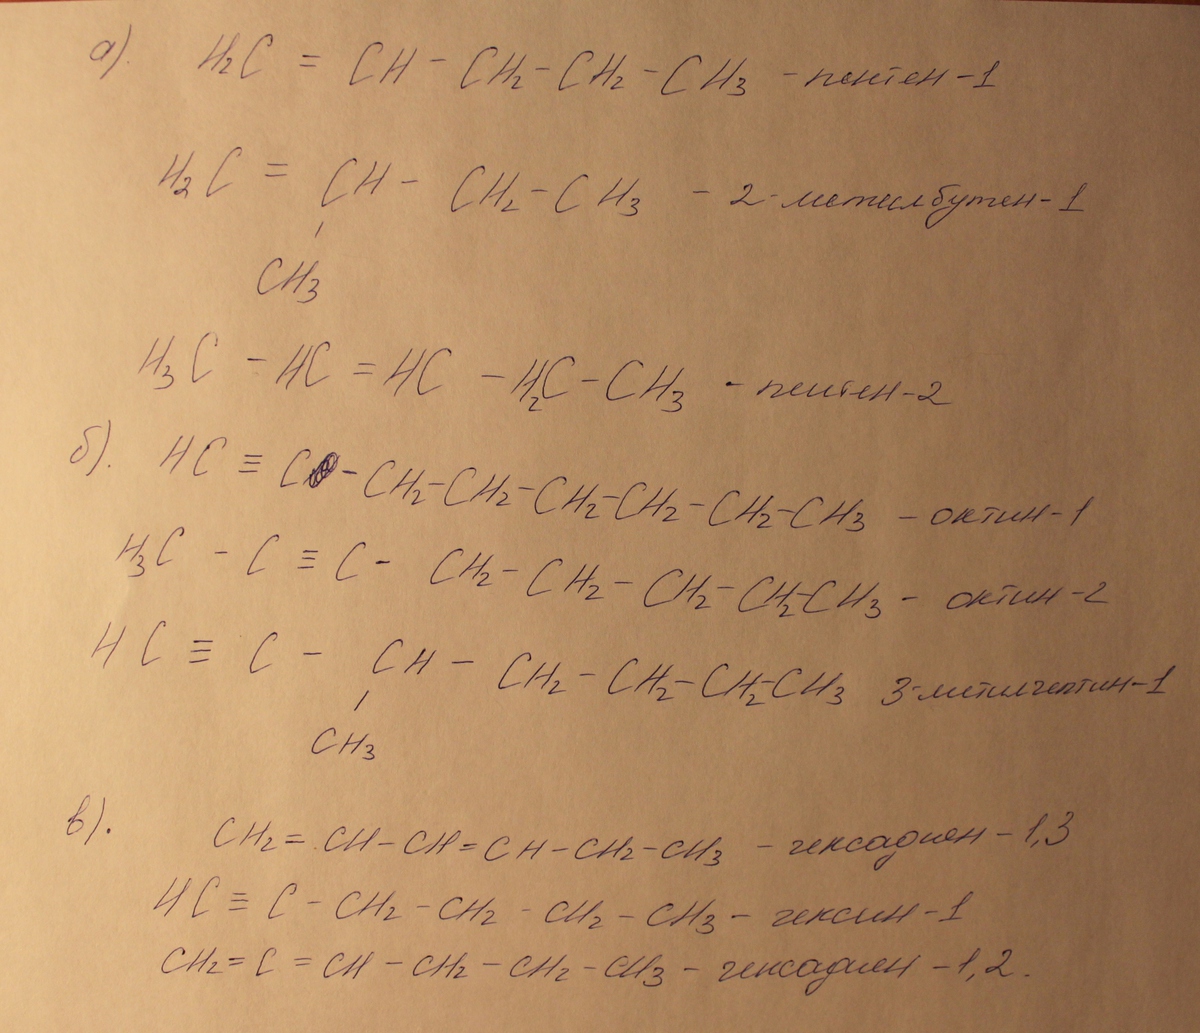 а). H₂C = CH - CH₂ - CH₂ - CH₃ - пентен-1
H₂C = CH - CH₂ - CH₃ - 2-метилбутен-1
CH₃
H₃C - HC = HC - H₂C - CH₃ - пентен-2
б). HC ≡ C - CH₂ - CH₂ - CH₂ - CH₂ - CH₂ - CH₃ - октин-1
H₃C - C ≡ C - CH₂ - CH₂ - CH₂ - CH₂ - CH₃ - октин-2
HC ≡ C - CH - CH₂ - CH₂ - CH₂ - CH₃ 3-метилгептин-1
CH₃
в). CH₂ = CH - CH = CH - CH₂ - CH₃ - гексадиен-1,3
HC ≡ C - CH₂ - CH₂ - CH₂ - CH₃ - гексин-1
CH₂ = C = CH - CH₂ - CH₂ - CH₃ - гексадиен-1,2.